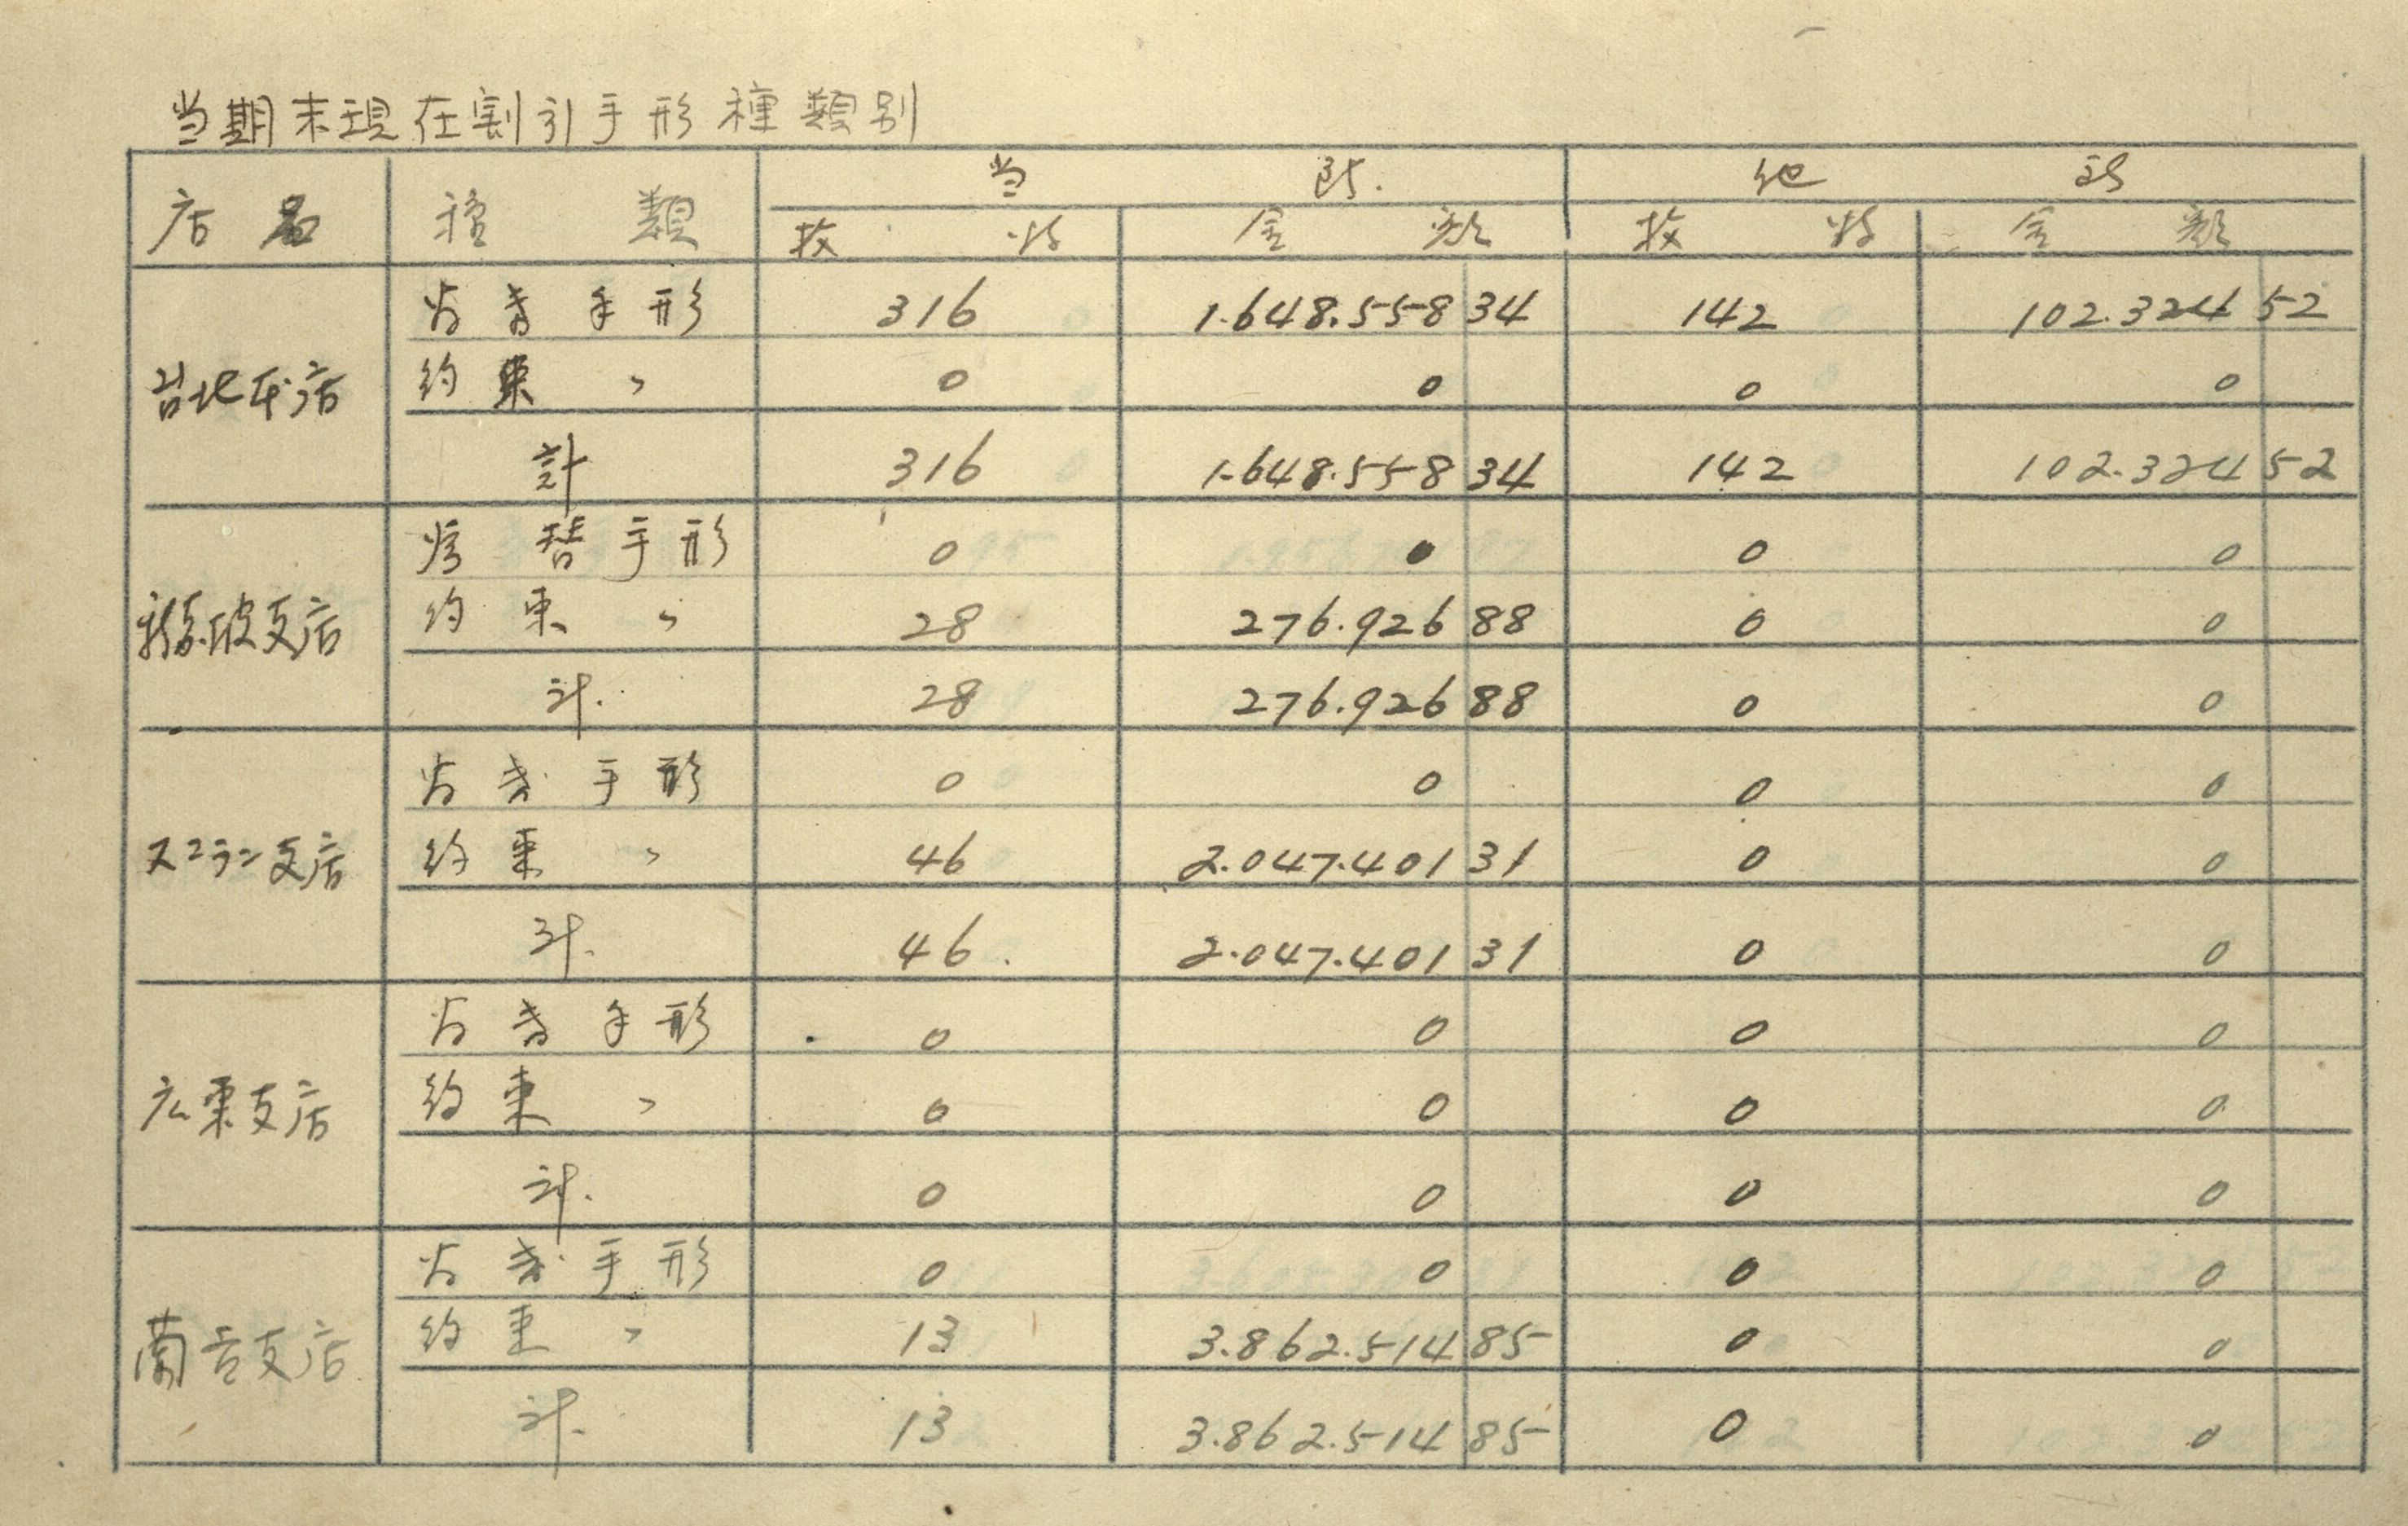 当期末現在割引手形種類別
店名 種類 当所. 他所
枚数 金額 枚数 金額
台北本店 為替手形 316 1.648.558 34 142 102.324 52
約束 〃 0 0 0 0
計 316 1.648.558 34 142 102.324 52
新嘉坡支店 為替手形 0 0 0 0
約束 〃 28 276.926 88 0 0
計. 28 276.926 88 0 0
スマラン支店 為替手形 0 0 0 0
約束 〃 46 2.047.401 31 0 0
計. 46. 2.047.401 31 0 0
広東支店 為替手形 0 0 0 0
約束 〃 0 0 0 0
計. 0 0 0 0
蘭貢支店 為替手形 0 0 0 0
約束 〃 13 3.862.514 85 0 0
計. 13 3.862.514 85 0 0